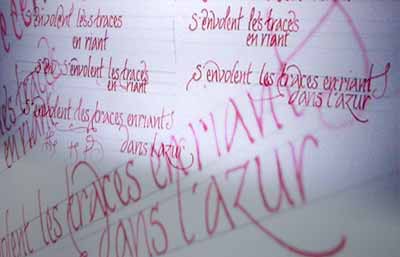 s'envolent les traces
en riant
s'envolent les traces
en riant
s'env s'envolent les traces
en riant
s'envolent les traces en riant
dans l'azur
s'envolent des traces en riant
dans l'azur
les traces
en riant
volent les traces en riant
dans l'azur